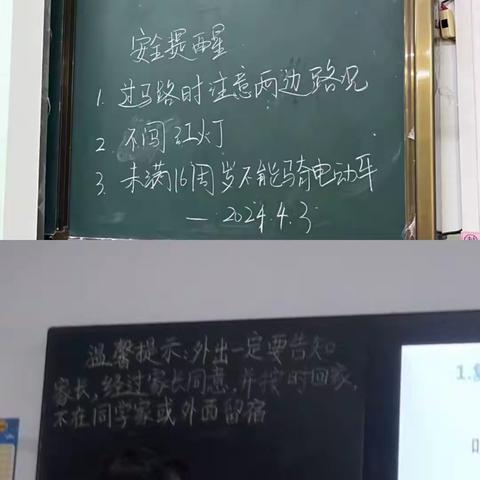 安全提醒
1. 过马路时注意两边路况
2. 不闯红灯
3. 未满16周岁不能骑电动车
— 2024.4.3
温馨提示:外出一定要告知
家长,经过家长同意,并按时回家,
不在同学家或外面留宿
1.